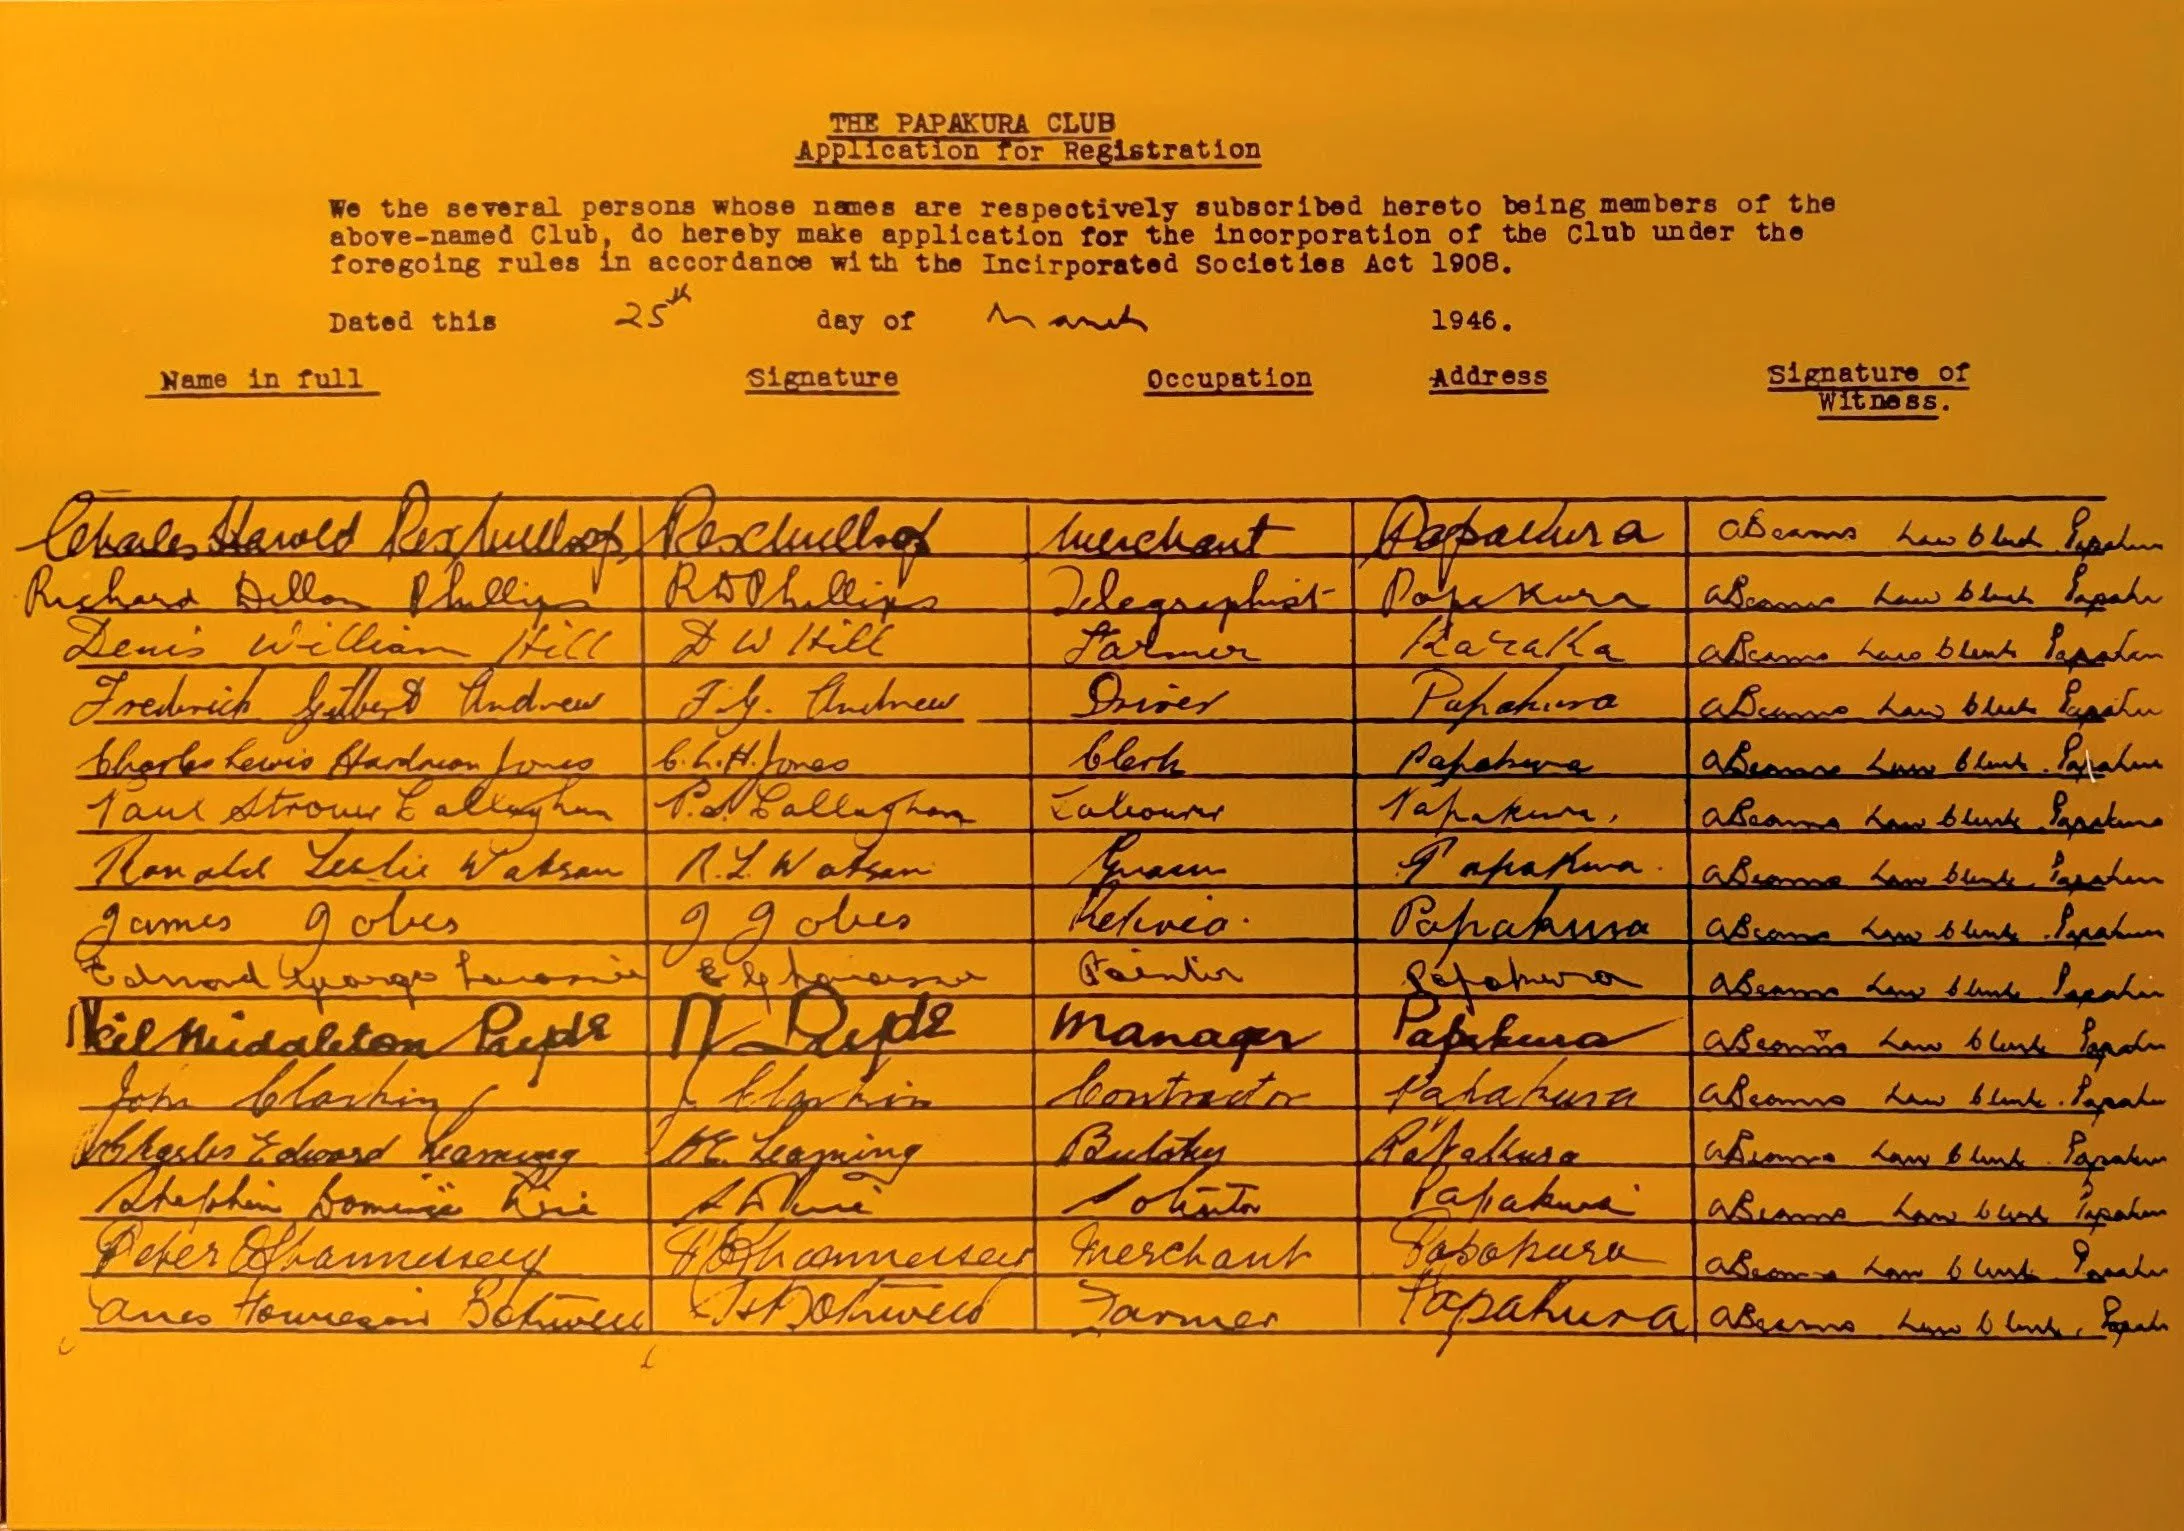 THE PAPAKURA CLUB
Application for Registration
We the several persons whose names are respectively subscribed hereto being members of the
above-named Club, do hereby make application for the incorporation of the Club under the
foregoing rules in accordance with the Incirporated Societies Act 1908.
Dated this 25th day of March 1946.
Name in full Signature Occupation Address Signature of
Witness.
Charles Harold Merchant Papakura ABeams Law Clerk Papakura
Richard Dillon Phillips R D Phillips Telegraphist Papakura ABeams Law Clerk Papakura
Denis William Hill D W Hill Farmer Karaka ABeams Law Clerk Papakura
Frederick Gilbert Andrew F.G. Andrew Driver Papakura ABeams Law Clerk Papakura
Charles Lewis Hardman Jones C.L.H. Jones Clerk Papakura ABeams Law Clerk. Papakura
Paul Callaghan P.S. Callaghan Labourer Papakura, ABeams Law Clerk Papakura
Ronald Leslie Watson R.L. Watson Papakura. ABeams Law Clerk Papakura
James Jobes J Jobes Papakura ABeams Law Clerk Papakura
Edmond George E G Painter Papakura ABeams Law Clerk Papakura
Neil Middleton Pryde N Pryde Manager Papakura ABeams Law Clerk Papakura
John Clarkin J Clarkin Contractor Papakura ABeams Law Clerk. Papakura
Charles Edward Leaming C E. Leaming Butcher Papakura ABeams Law Clerk Papakura
Stephen Dominic Rice S D Rice Solicitor Papakura ABeams Law Clerk Papakura
Peter O'Shannessey P O'Shannessey Merchant Papakura ABeams Law Clerk Papakura
Bothwell Bothwell Farmer Papakura ABeams Law Clerk, Papakura